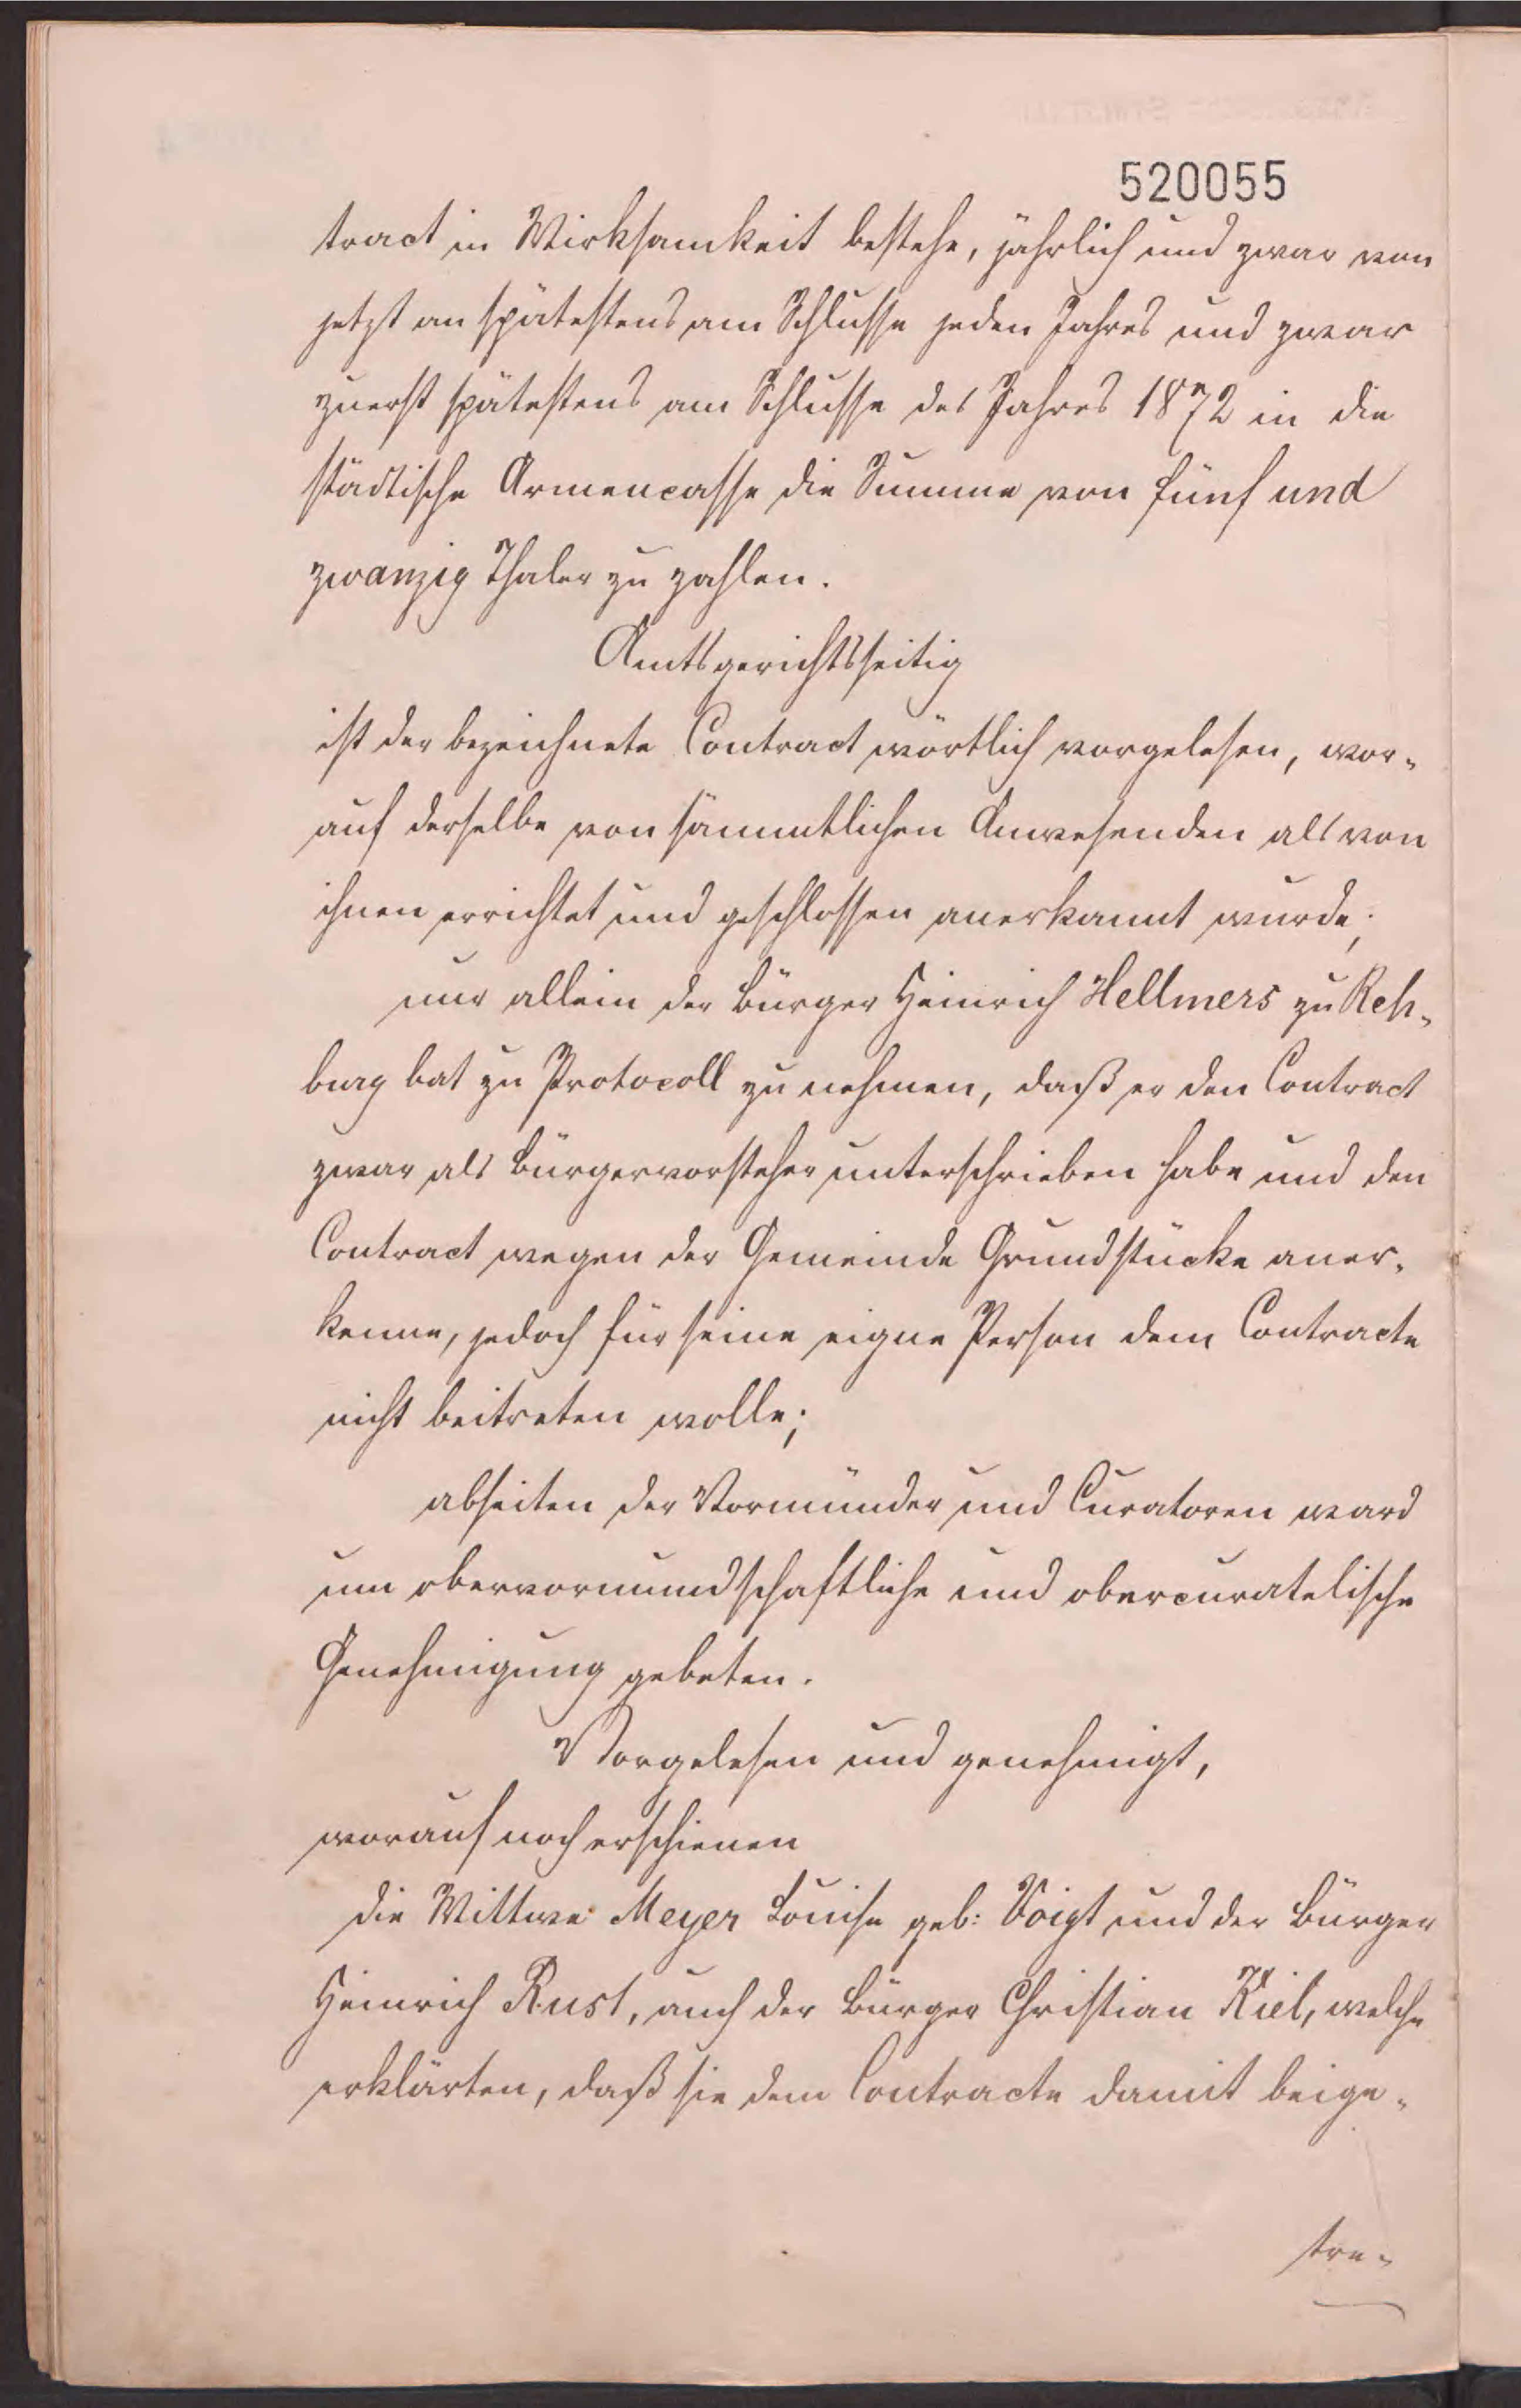 520055
tract in Wirksamkeit bestehe, jährlich und zwar von
jetzt an spätestens am Schlusse jeden Jahres und zwar
zuerst spätestens am Schlusse des Jahres 1872 in die
städtische Armencasse die Summe von fünf und
zwanzig Thaler zu zahlen.
Amtsgerichtsseitig
ist der bezeichnete Contract wörtlich vorgelesen, wor-
auf derselbe von sämmtlichen Anwesenden als von
ihnen errichtet und geschlossen anerkannt wurde;
nur allein der Bürger Heinrich Hellmers zu Reh-
burg bat zu Protocoll zu nehmen, daß er den Contract
zwar als Bürgervorsteher unterschrieben habe und den
Contract wegen der Gemeinde Grundstücke aner-
kenne, jedoch für seine eigne Person dem Contracte
nicht beitreten wolle;
abseiten der Vormünder und Curatoren ward
um obervormundschaftliche und obercuratelische
Genehmigung gebeten.
Vorgelesen und genehmigt,
worauf noch erschienen
die Wittwe Meyer Louise geb: Voigt und der Bürger
Heinrich Rust, auch der Bürger Christian Kiel, welche
erklärten, daß sie dem Contracte damit beige-
tre-